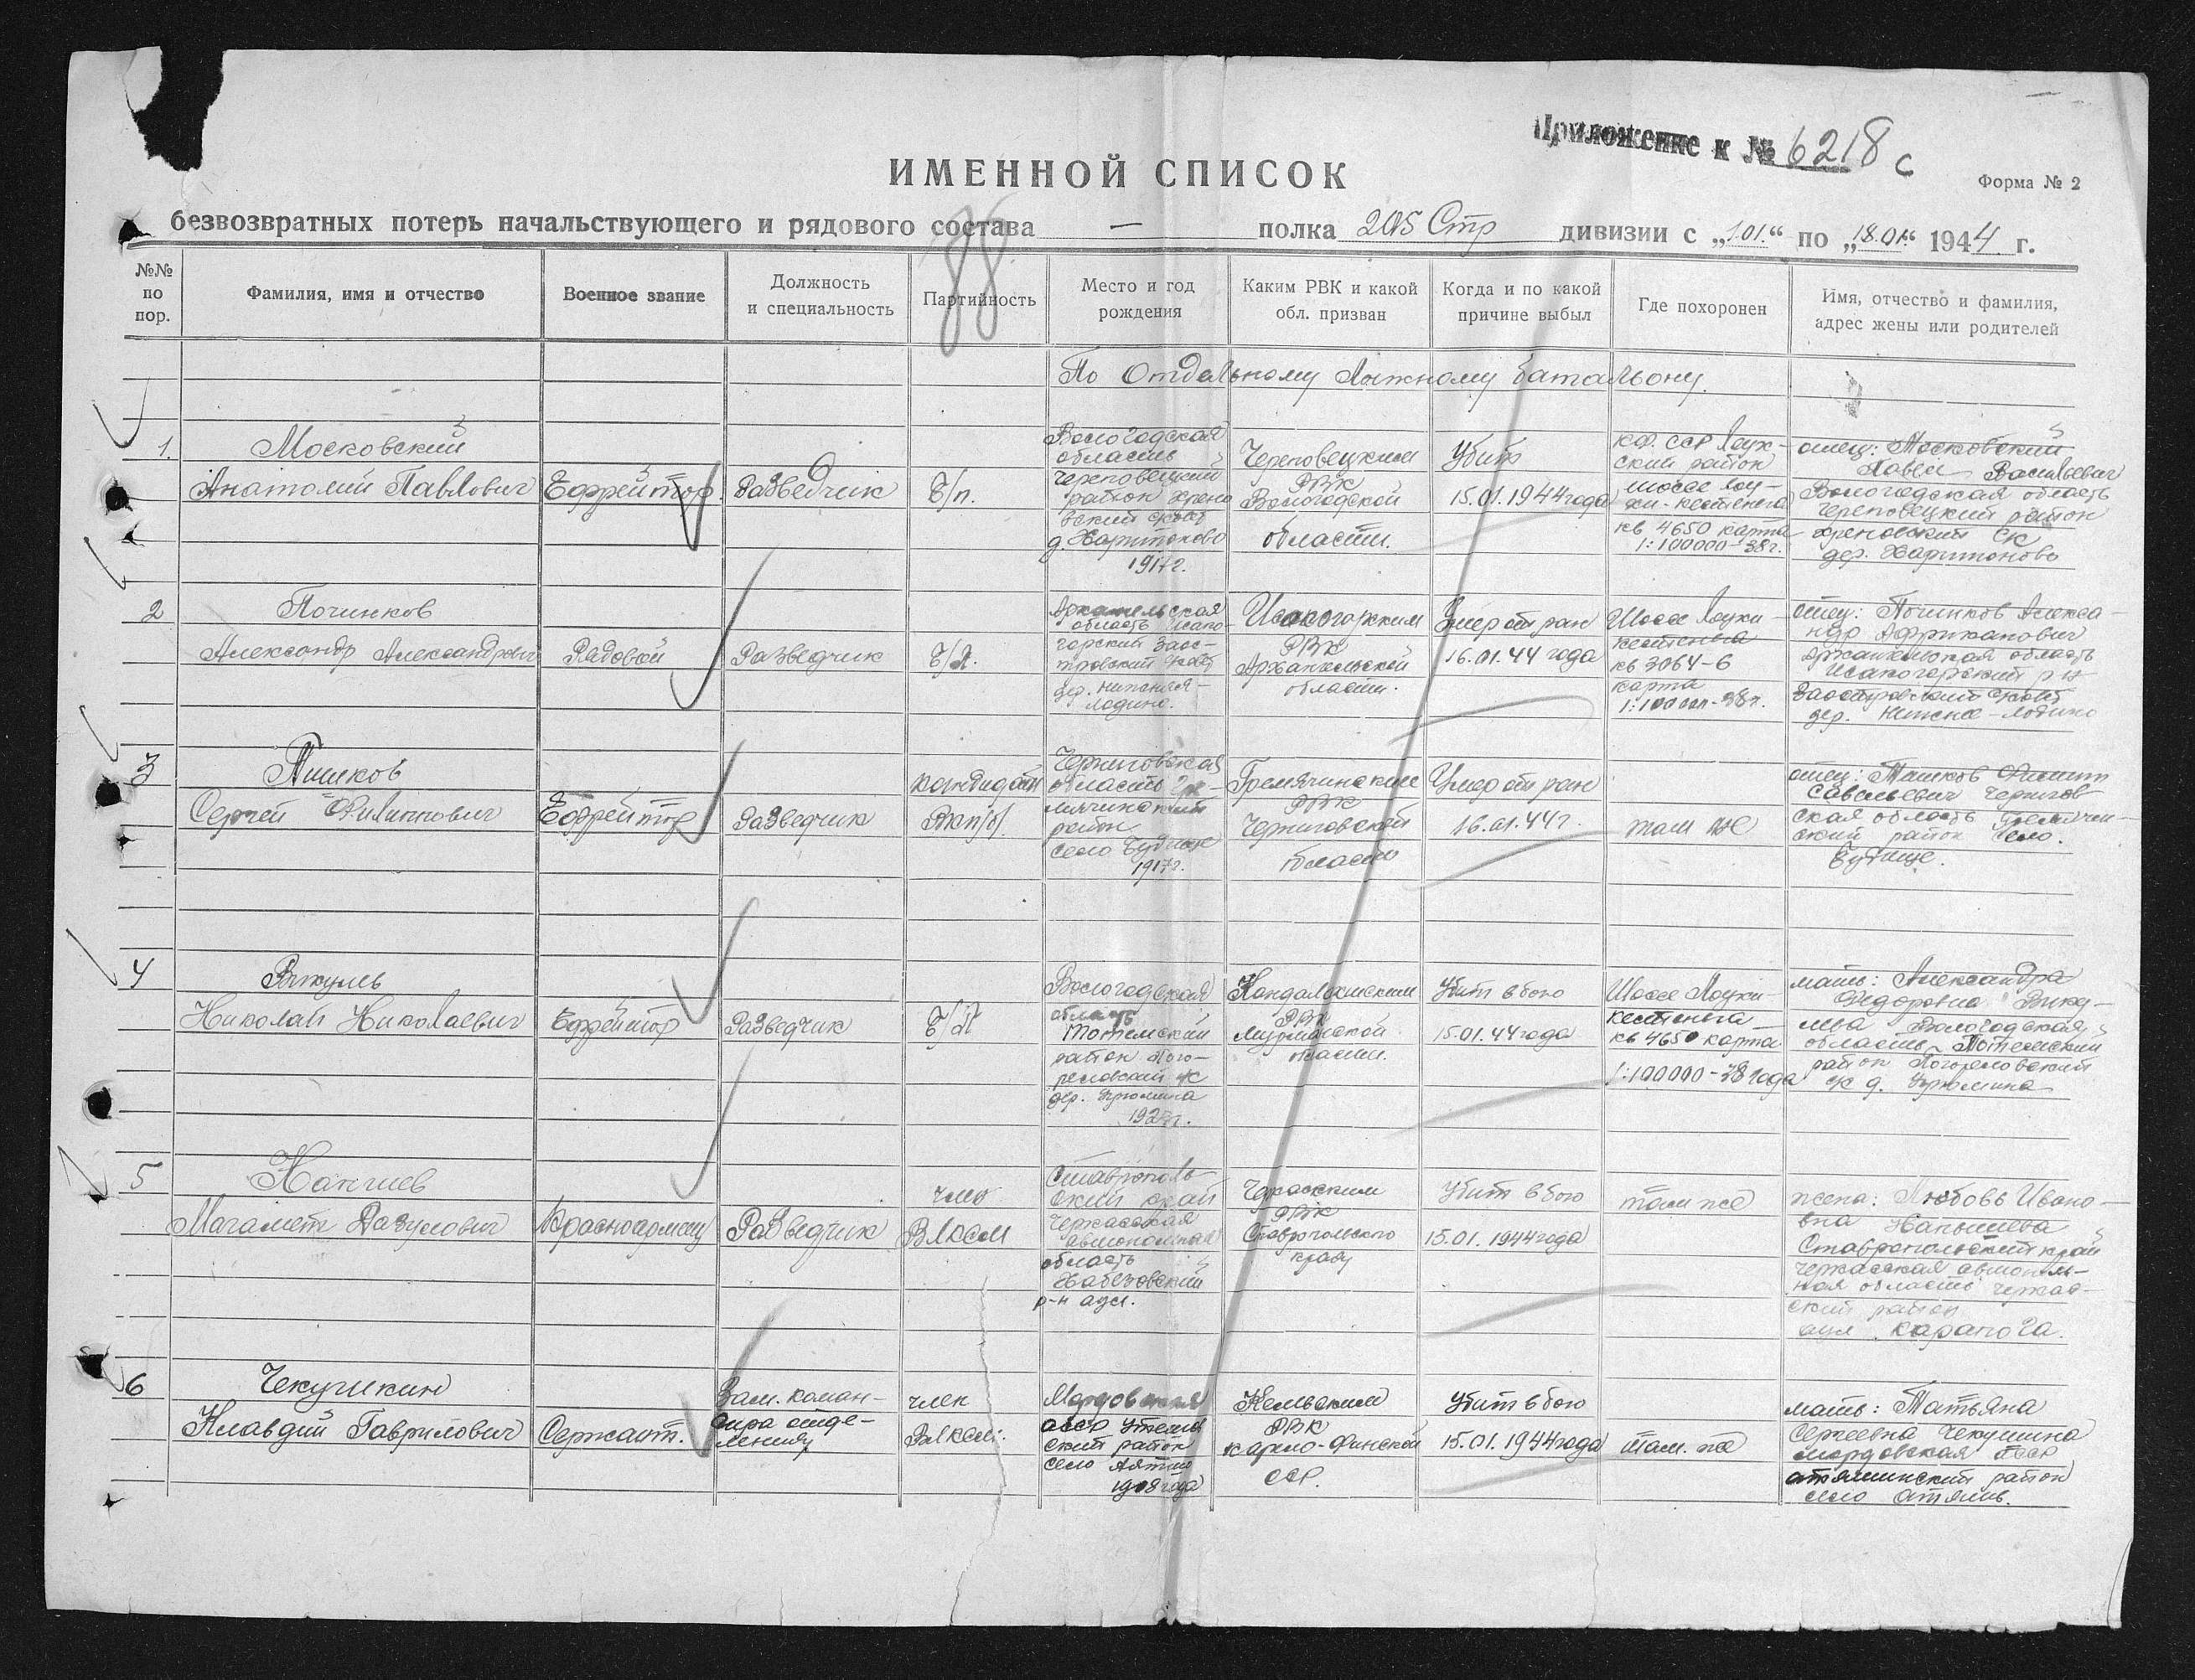 Приложение к № 6218 с
ИМЕННОЙ СПИСОК
Форма № 2
безвозвратных потерь начальствующего и рядового состава — полка 205 Стр дивизии с „1.01.“ по „18.01.“ 1944 г.
88
№№ по пор.
Фамилия, имя и отчество
Военное звание
Должность и специальность
Партийность
Место и год рождения
Каким РВК и какой обл. призван
Когда и по какой причине выбыл
Где похоронен
Имя, отчество и фамилия, адрес жены или родителей
По Отдельному Лыжному батальону.
1.
Московский
Анатолий Павлович
Ефрейтор
Разведчик
Б/п.
Вологодская
область
Череповецкий
район
д. Харитоново
1917г.
Череповецким
РВК
Вологодской
области.
Убит
15.01.1944года
КФ. ССР Лоух-
ский район
шоссе Лоу-
хи-Кестеньга
кв 4650 карта
1:100000-38г.
отец: Московский
Павел Васильевич
Вологодская область
Череповецкий район
дер. Харитоново
2
Починков
Александр Александрович
Рядовой
Разведчик
Б/П.
область Исако-
горский Заос-
Исакогорским
РВК
Архангельской
области.
Умер от ран
16.01.44 года
Шоссе Лоухи-
Кестеньга
кв 3064-6
карта
1:100000-38г.
отец: Починков Алекса-
ндр Африканович
Архангельская область
Исакогорский р-н
дер. Нижнее-Ладино
3
Сергей Филиппович
Ефрейтор
Разведчик
кандидат
ВКП/б/.
Черниговская
область
район
село
1917г.
Гремячинским
РВК
Черниговской
области
Умер от ран
16.01.44г.
там же
отец:
Савельевич Чернигов-
ская область Гремячин-
ский район село.
Будище.
4
Викулев
Николай Николаевич
Ефрейтор
Разведчик
Б/П
Вологодская
область
Тотемский
район Пого-
реловский с/с
дер.
Кандалакшским
РВК
Мурманской
области.
Убит в бою
15.01.44 года
Шоссе Лоухи-
Кестеньга
кв 4650 карта
1:100000-38 года
мать: Александра
Федоровна Вику-
лева Вологодская
область, Тотемский
район Погореловский
с/с д.
5
Магамет
Красноармеец
Разведчик
член
ВЛКСМ
Ставрополь-
ский край
Черкасская
автономная
область
Хабезовский
р-н аул.
Черкасским
РВК
Ставропольского
края
Убит в бою
15.01.1944года
там же
жена: Любовь Ивано-
вна
Ставропольский край
Черкасская автоном-
ная область Черкас-
ский район
аул
6
Чекушкин
Клавдий Гаврилович
Сержант.
Зам. коман-
дира отде-
ления
член
ВЛКСМ.
Мордовская
АССР
ский район
село
1908 года
Кемьским
РВК
Карело-Финской
ССР.
Убит в бою
15.01.1944года
там же
мать: Татьяна
Сергеевна
Мордовская АССР
Атяшинский район
село Атяшь.